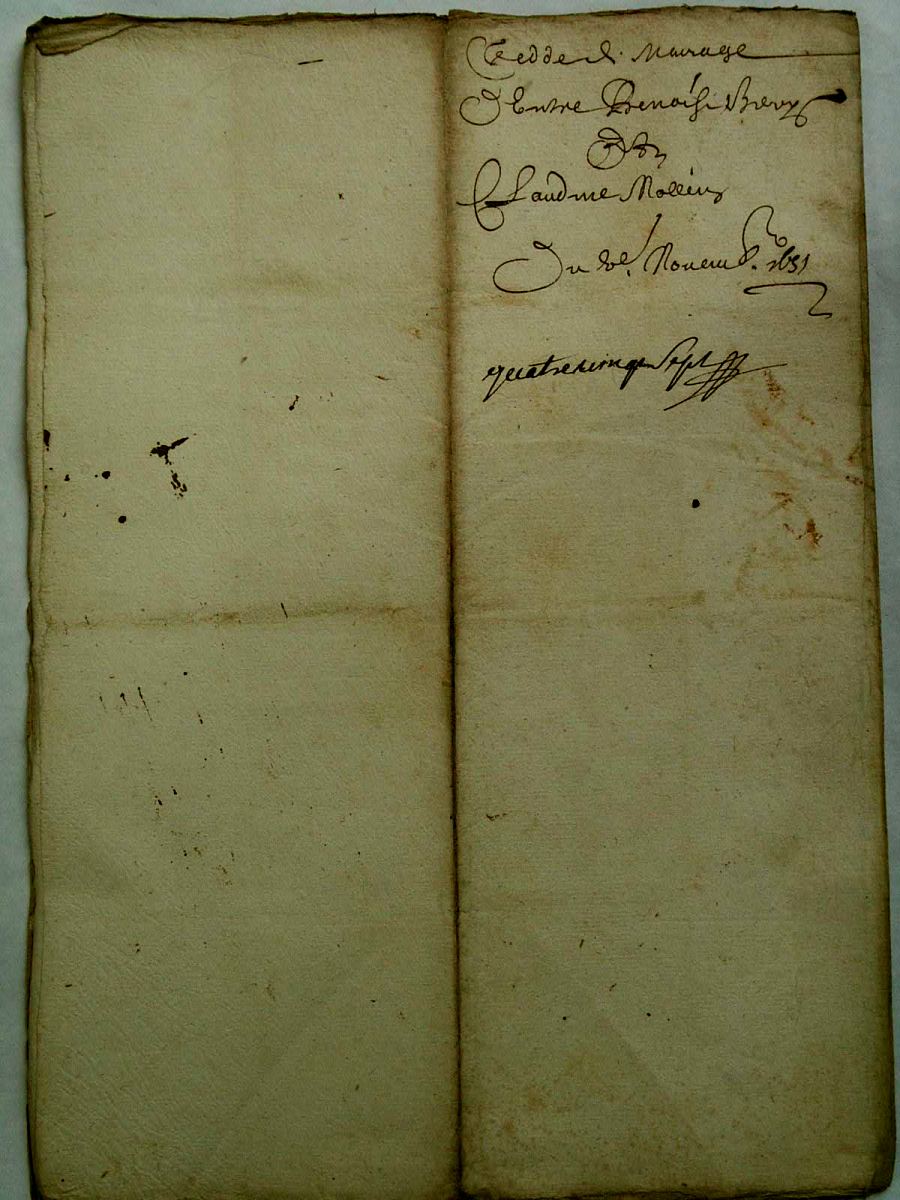 Cedde de Mariage
D Entre Benoist
Et
Claudine Mollin
Du Novemb. 1651
quatre vingt Sept